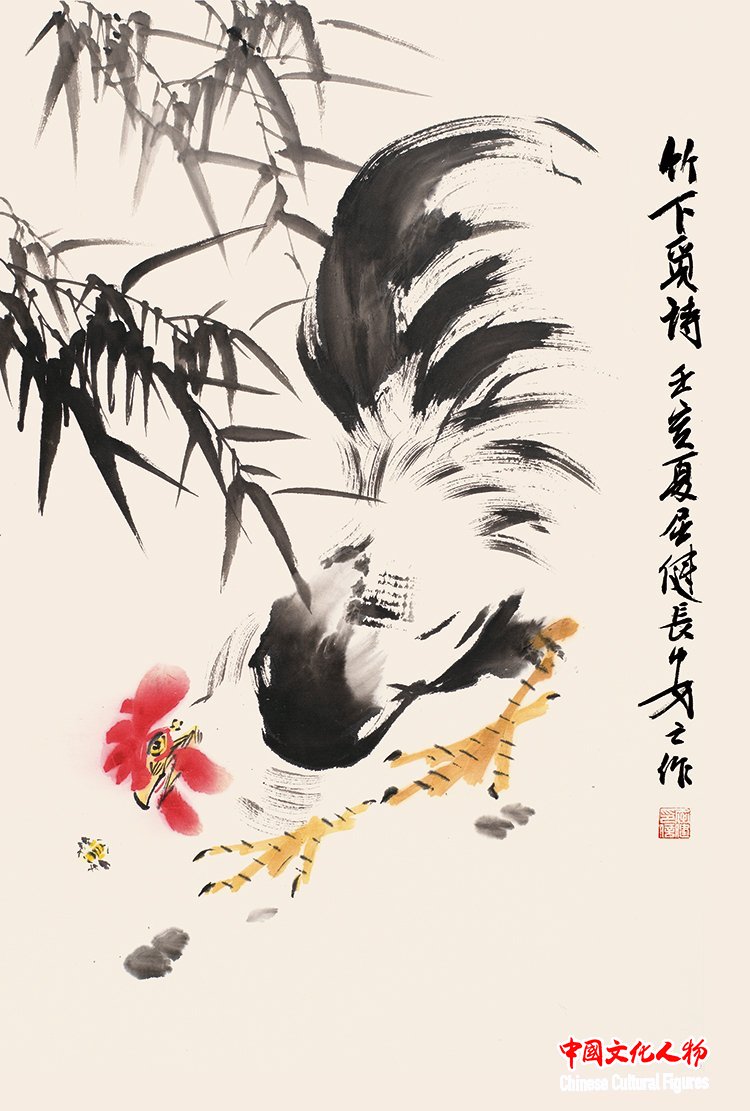 竹下覓詩 壬寅夏屈健長安之作
中國文化人物
Chinese Cultural Figures